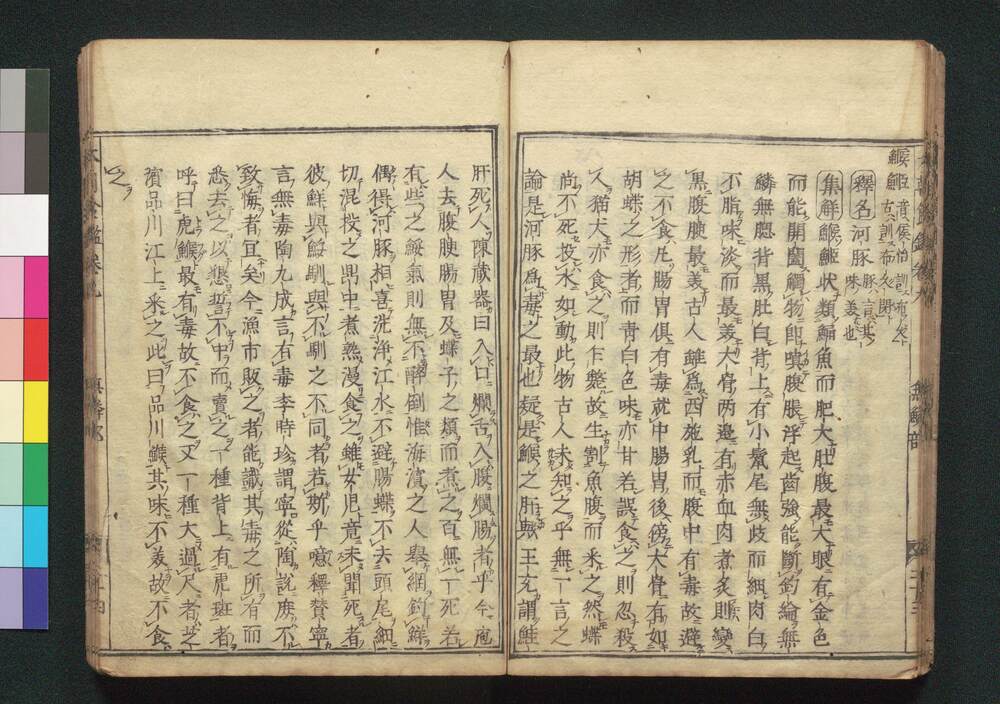 鯸䱌 音侯怡訓布久 古訓布久閉
釋名 河豚 豚言其味美也
集解 鯸䱌狀類鯿魚而肥大肚腹最大眼有金色
而能開闔觸物即嗔腹脹浮起齒強能斷釣綸無
鱗無腮背黑肚白背上有小鬣尾無歧而細肉白
不脂味淡而最美大骨两邊有赤血肉煮炙則變
黒腹腴最美古人雖為西施乳而腹中有毒故避
之不食凡腸胃俱有毒就中腸胃後傍大骨有如
胡蝶之形者而青白色味亦甘若誤食之則忽殺
人猶犬亦食之則乍斃故生割魚腹而采之然蝶
尚不死投水如動此物古人未知之乎無一言之
論是河豚爲毒之最也疑是鯸之肝與王充謂鮭
肝死人陳藏器曰入口爛舌入腹爛腸者乎今庖
人去腹腴腸胃及蝶子之類而煮之百無一死若
有些之餒氣則無不醉倒惟海濱之人舉網釣鮮
偶得河豚相喜洗浄江水不避腸蝶不去頭尾細
切混投之鼎中煮熟漫食之雖女児竟未聞死者
彼鮮與餒馴與不馴之不同者若斯乎噫釋賛寧
言無毒陶九成言有毒李時珍謂寧從陶說庶不
致悔者宜矣今漁市販之者能識其毒之所有而
悉去之以懇誓不中而賣之一種背上有虎斑者
呼曰虎鯸最有毒故不食之又一種大過尺者芝
濱品川江上采之此曰品川鯸其味不美故不食
之